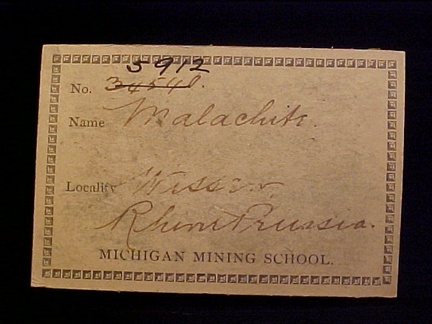 5912
No. 34548.
Name Malachite.
Locality Wissen
Rhine Prussia.
MICHIGAN MINING SCHOOL.